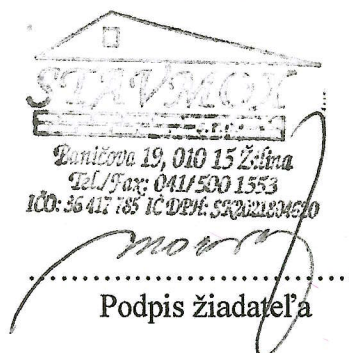 STAVMOX
Baničova 19, 010 15 Žilina
Tel./Fax: 041/500 1553
IČO: 36 417 785 IČ DPH: SK2021804620
Podpis žiadateľa